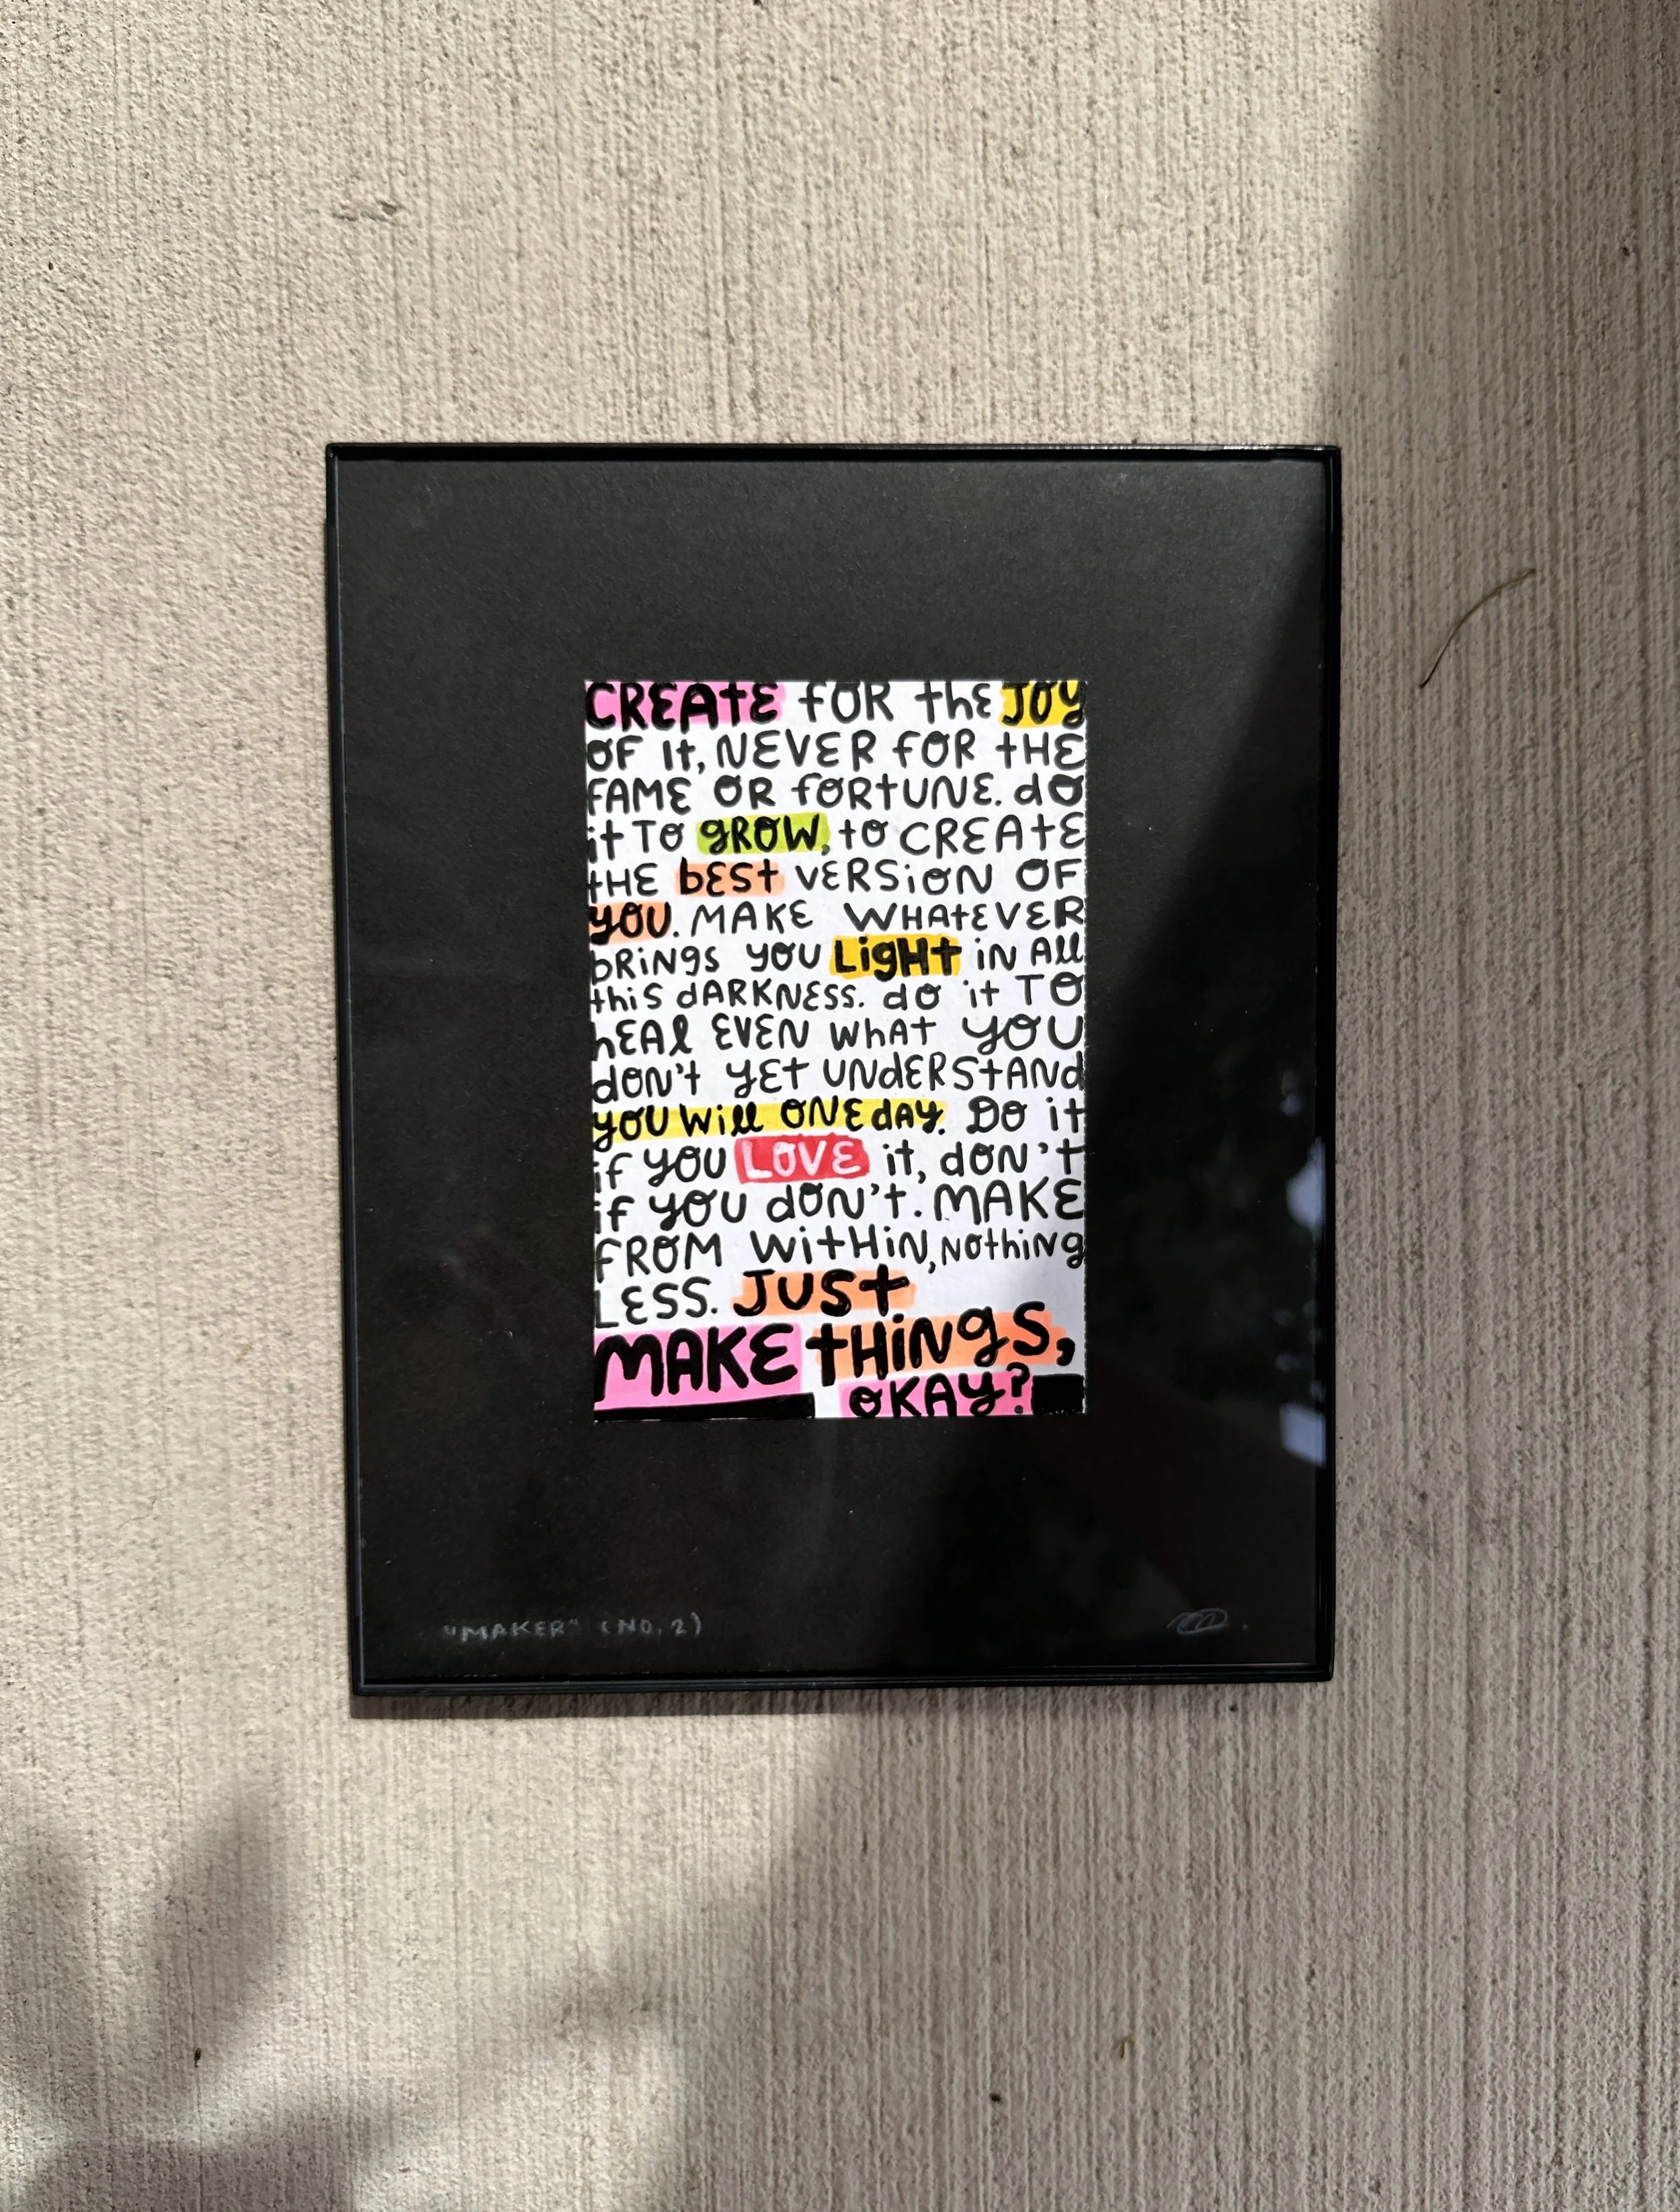 CREATE FOR the JOY
OF It, NEVER FOR tHE
FAME OR fORtUNE. dO
it TO gROW, to CREAtE
tHE bESt VERSiON OF
YOU. MAKE WHAtEVER
bRiNgS YOU LigHt iN All
thiS dARKNESS. dO it TO
hEAl EVEN WhAt YOU
dON't YEt UNdERStANd
YOU Will ONE dAY. DO it
if YOU LOVE it, dON't
if YOU dON't. MAKE
FROM WitHiN, NOthiNg
LESS. JUSt
MAKE tHiNgS,
OKAY?
"MAKER" (NO. 2)